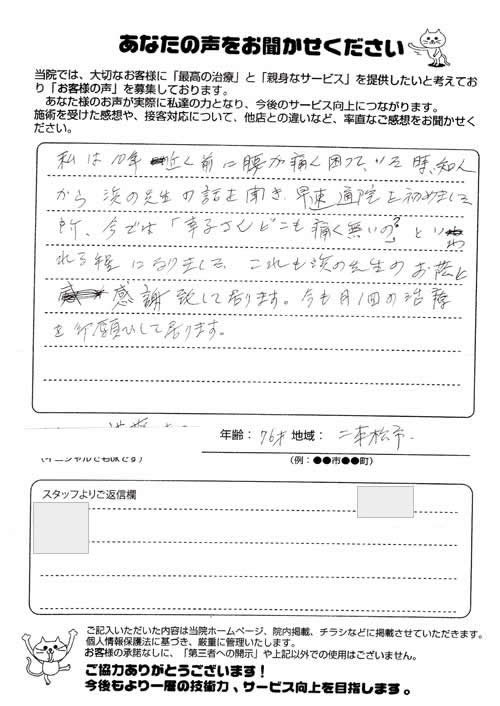 あなたの声をお聞かせください
当院では、大切なお客様に「最高の治療」と「親身なサービス」を提供したいと考えてお
り「お客様の声」を募集しております。
あなた様のお声が実際に私達の力となり、今後のサービス向上につながります。
施術を受けた感想や、接客対応について、他店との違いなど、率直なご感想をお聞かせく
ださい。
私は10年近く前に腰が痛く困っている時、知人
から浜の先生の話を聞き、早速通院を初めました
所、今では「幸子さんどこも痛く無いの?」といわ
れる程になりました。これも浜の先生のお蔭と
感謝致して居ります。今も月1回の治療
を御願いして居ります。
年齢: 76才 地域: 二本松市.
(イニシャルでもOKです)
(例:●●市●●町)
スタッフよりご返信欄
ご記入いただいた内容は当院ホームページ、院内掲載、チラシなどに掲載させていただきます。
個人情報保護法に基づき、厳重に管理いたします。
お客様の承諾なしに、「第三者への開示」や上記以外での使用はございません。
ご協力ありがとうございます!
今後もより一層の技術力、サービス向上を目指します。